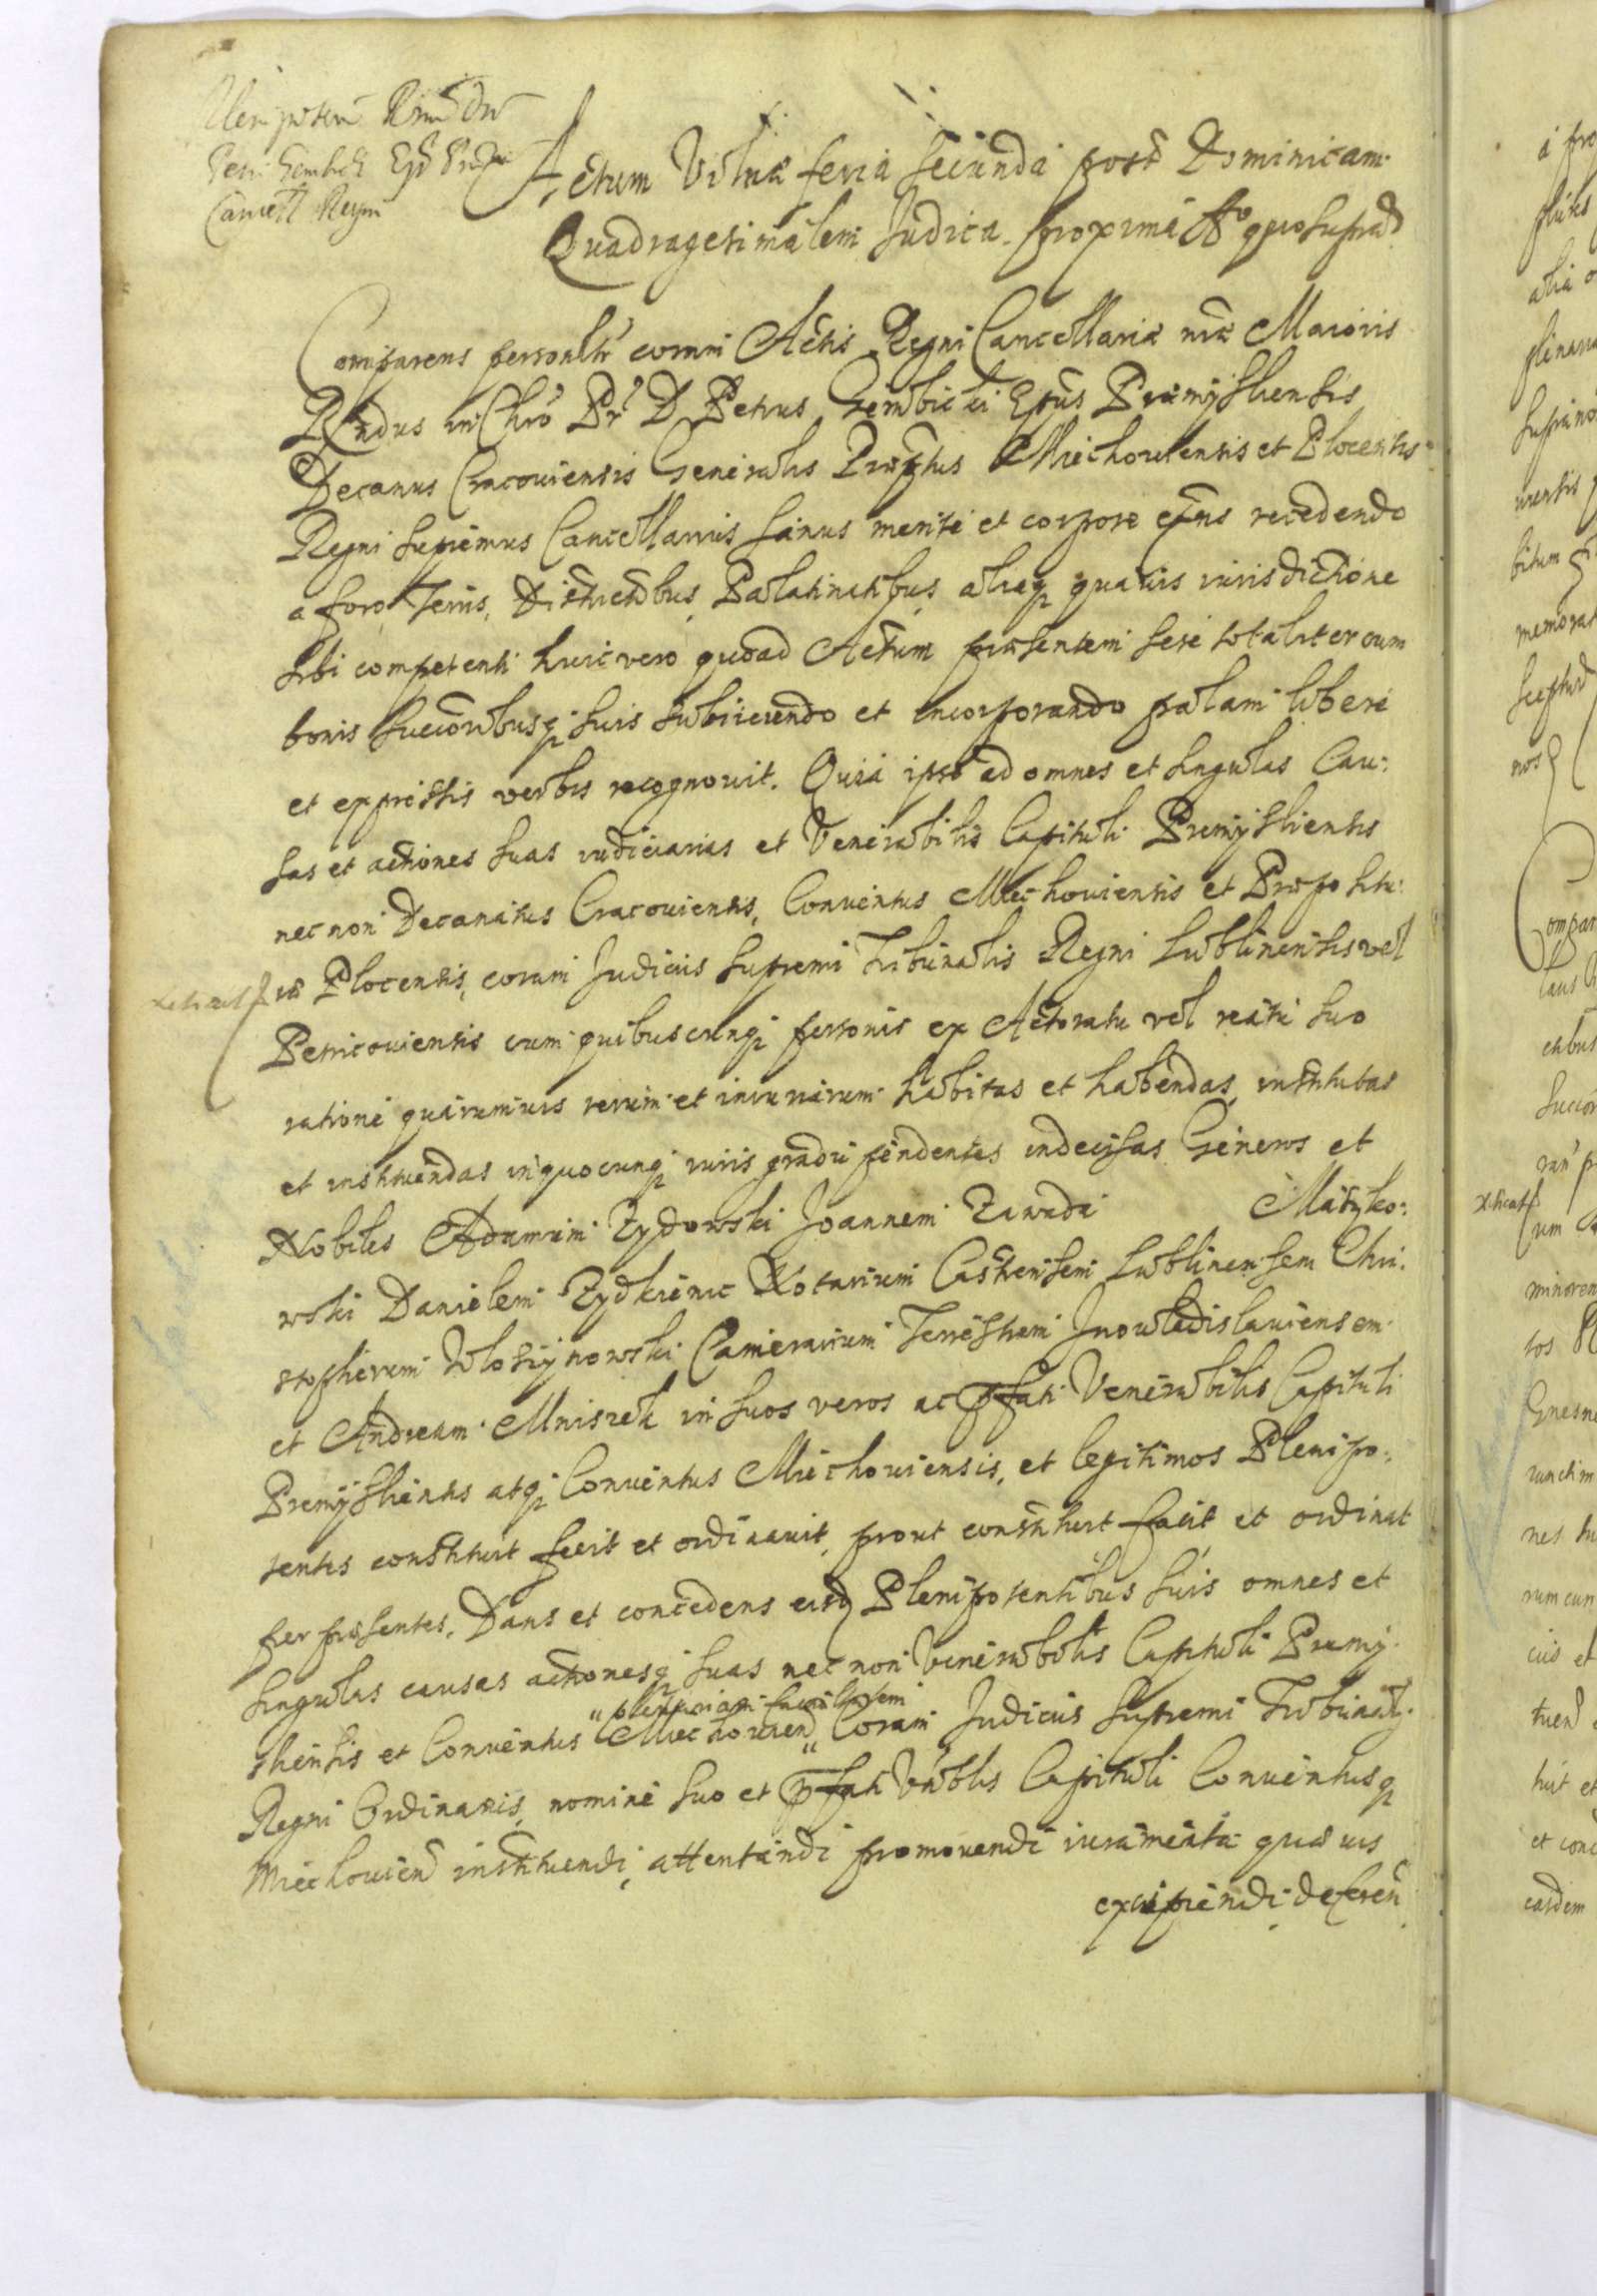 Plenipoten Rmi Dni
Petri Gembicki Epi Prem
Cancell Regni
Actum Vilnæ feria secunda post Dominicam
Quadragesimalem Judica proxima Ao quo suprad
Comparens personlr coram Actis Regni Cancellariæ nræ Maioris
Rndus in Chro Pr D Petrus Gembicki Epus Præmÿsliensis
Decanus Cracoviensis Generalis Præptus Miechoviensis et Plocensis
Regni supremus Cancellarius sanus mente et corpore exns recedendo
a foro Terris, Districtibus, Palatinatibus, aliaq quavis iurisdictione
sibi competenti huic vero quoad Actum præsentem sese totaliter cum
bonis successoribusq suis subiiciendo et incorporando palam libere
et expressis verbis recognovit. Quia ipse ad omnes et singulas Cau:
sas et actiones suas iudiciarias et Venerabilis Capituli Premÿsliensis
nec non Decanatus Cracoviensis, Conventus Miechoviensis et Præpositu:
ræ Plocensis, coram Judiciis supremi Tribunalis Regni Lublinensis vel
Petricoviensis cum quibuscunq personis ex Actoratu vel reatu suo
ratione quarumvis rerum et iniuriarum habitas et habendas, institutas
et instituendas in quocunq iuris gradu pendentes indecisas Generos et
Nobiles Adamum Zydowski Joannem Zawada Matyko:
wski Danielem Zydkienic Notarium Castrensem Lublinensem Chri:
stopherum Wlosÿnowski Camerarium Terrestrem Jnowladislaviensem
et Andream Mniszek in suos veros ac pfati Venerabilis Capituli
Premÿsliensis atq Conventus Miechoviensis, et legitimos Plenipo:
tentes constituit fecit et ordinavit, prout constituit facit et ordinat
per præsentes. Dans et concedens eisd Plenipotentibus suis omnes et
singulas causas actionesq suas nec non Venerabilis Capituli Premÿ:
sliensis et Conventus "Miechovien" Coram Judiciis Supremi Tribunalij
"plenariam facultatem
Regni Ordinariis, nomine suo et pfati Vnblis Capituli Conventusq
Miechovien instituendi, attentandi promovendi iuramenta quævis
excipiendi deferen